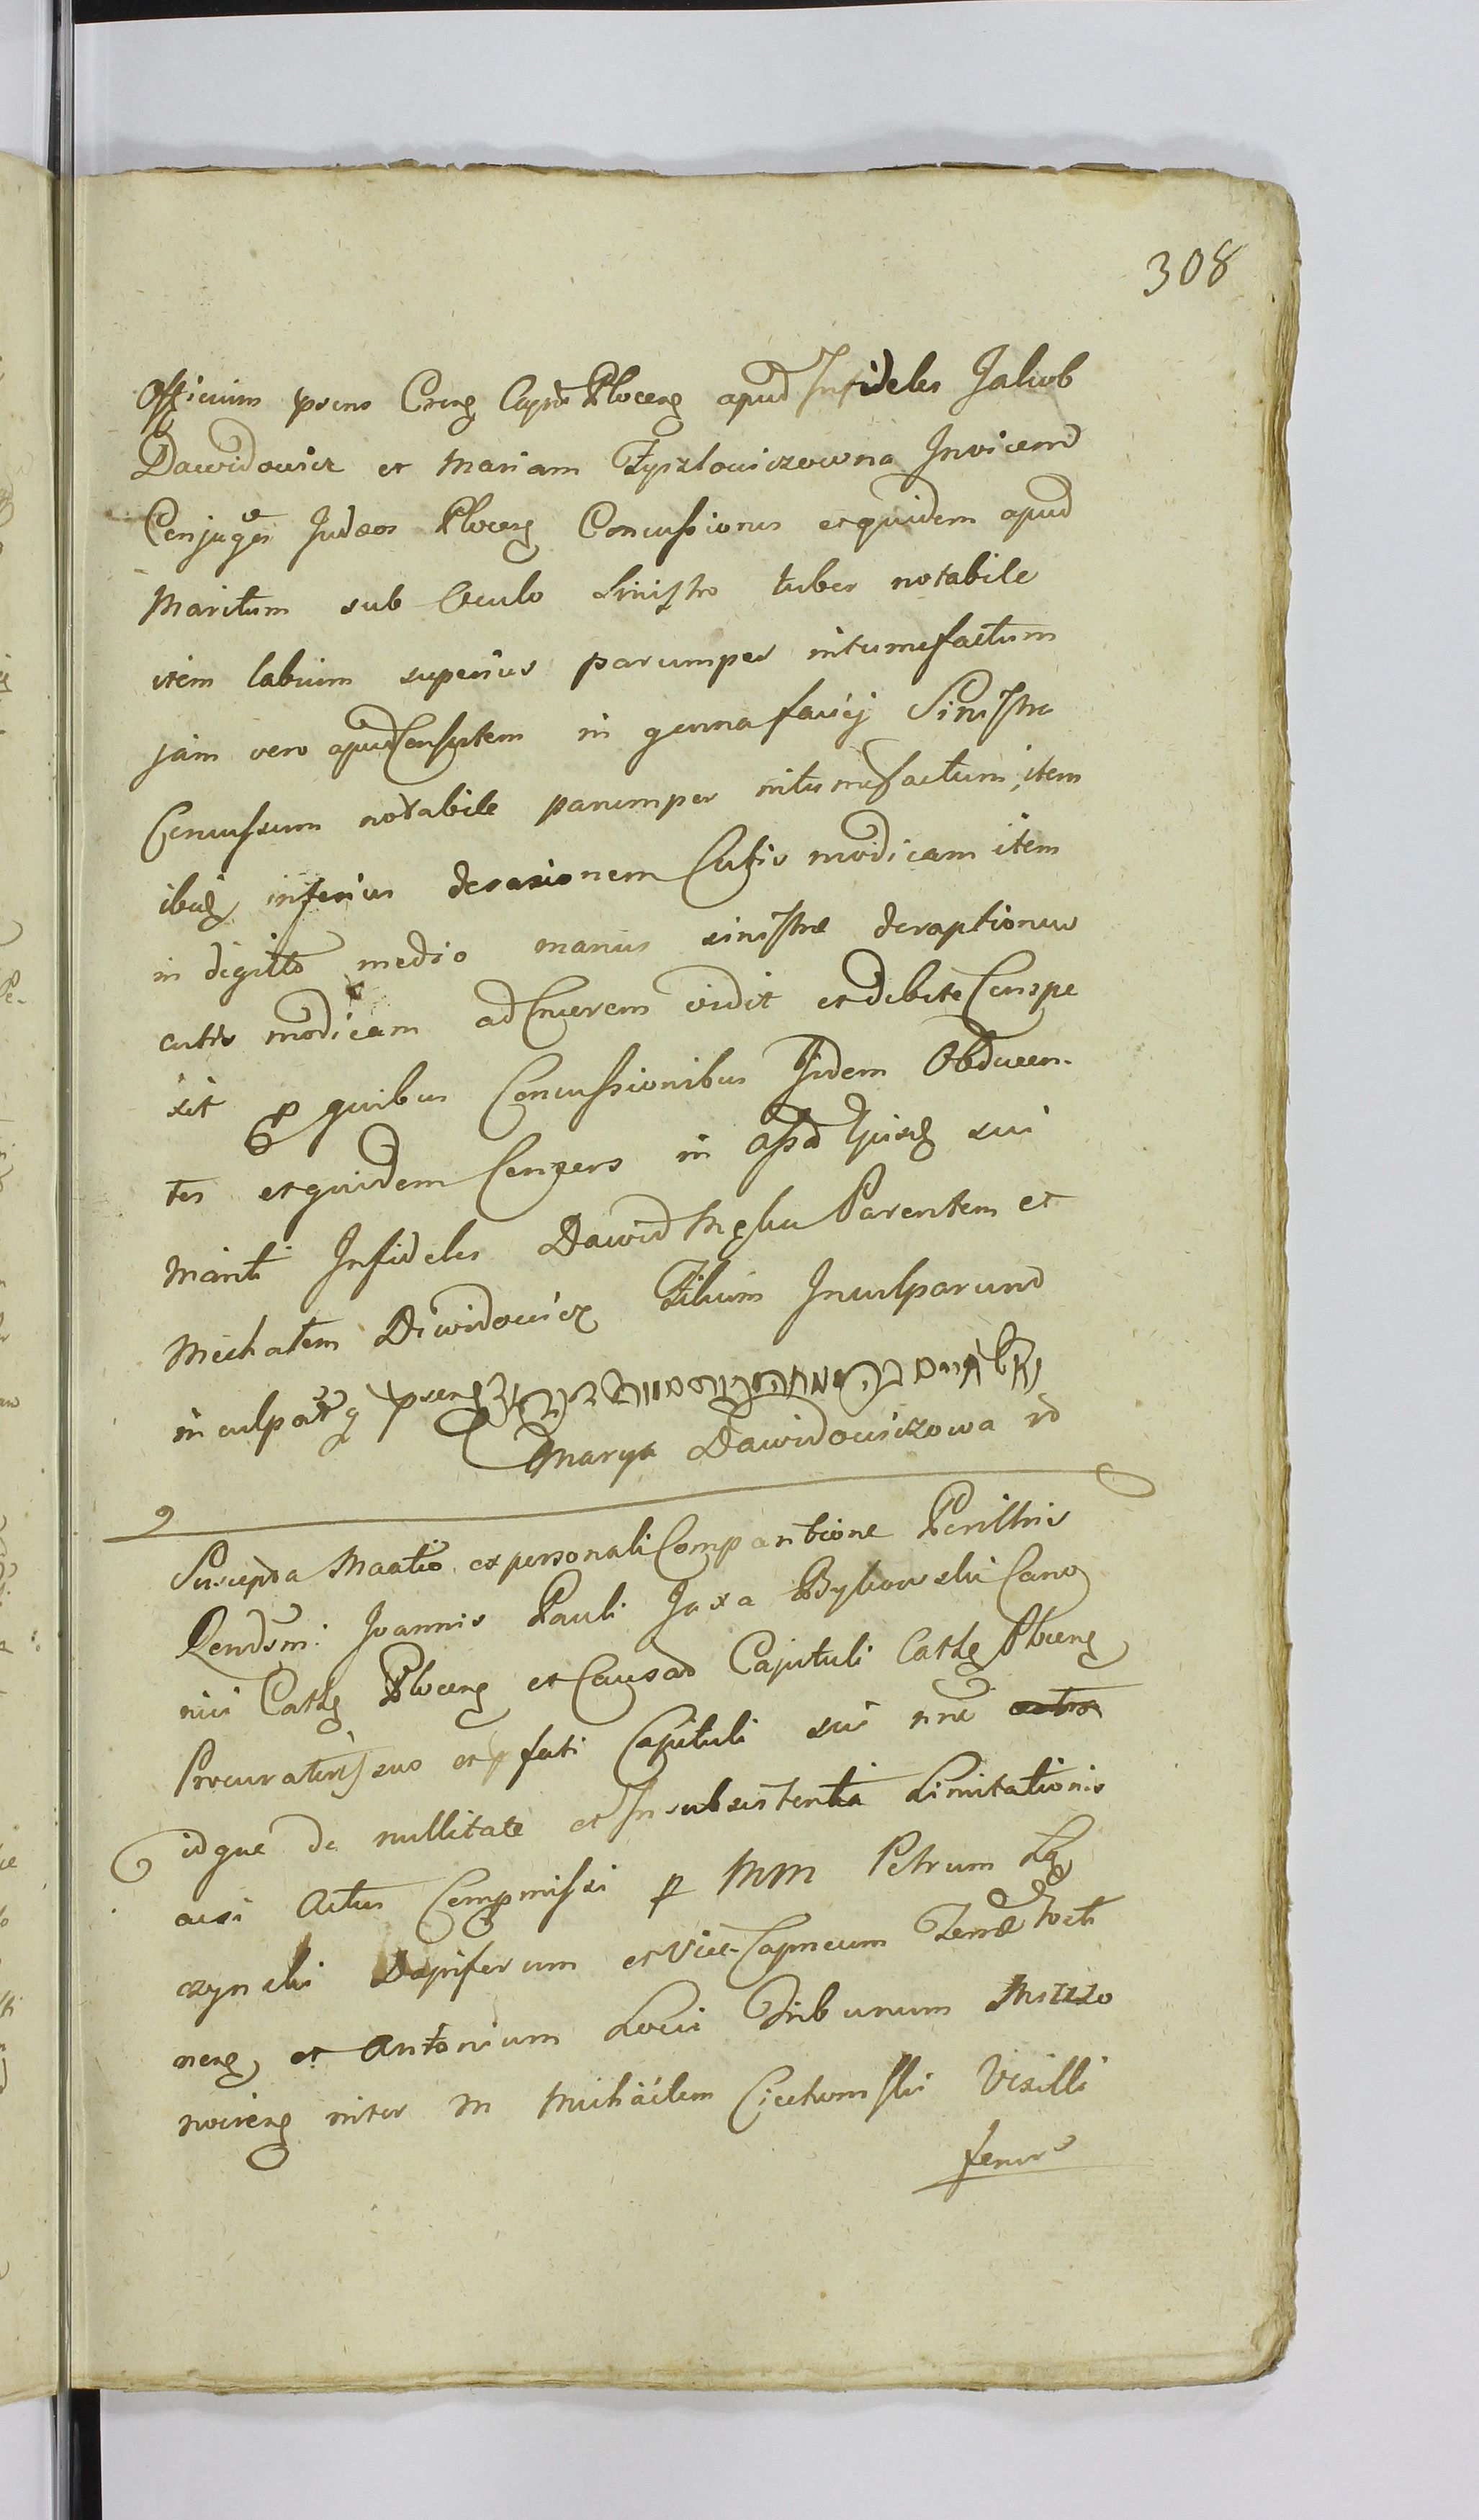 308
Officium psens Creng Capit Ploceng apud Infideles Jakub
Dawidowicz et Mariam Zyszlowiczowna Invicem
Conjuges Judæos Ploceng Concussiones et quidem apud
Maritum sub Oculo Sinistro tuber notabile
item labium superius parumper intumefactum
jam vero apud Consortem in gena faciej Sinistra
Concussum notabile parumper intumefactum, item
ibidq inferius derasionem Cutis modicam item
in digitto medio manus sinistræ deraptionem
cutis modicam ad Cruorem vidit et debite Conspe
xit p quibus Concussionibus Iidem Obducen-
tes et quidem Consors in assa Ipsiq sui
Mariti Infideles Dawid Parentem et
Michalem Dawidowicz Filium Inculparund
inculpatq pseng
Marya Dawidowiczowa
Suscepta Maatio ex personali Comparitione Perillris
Rendsmi: Joannis Pauli Jaxa Bykowski Cano
nici Cathg Ploceng et Causað Capituli Cathg Ploceng
Procuratoris suo et pfati Capituli sui nne
idque de nullitate et Insubsistentia Limitationis
acsi Actus Compmissi p MM Petrum Lą
czynski Dapiferum et Vice-Capneum Terræ
neng et Antonium Loci Tribunum
noireng inter M Michäelem Ciechomski Vexilli
feru